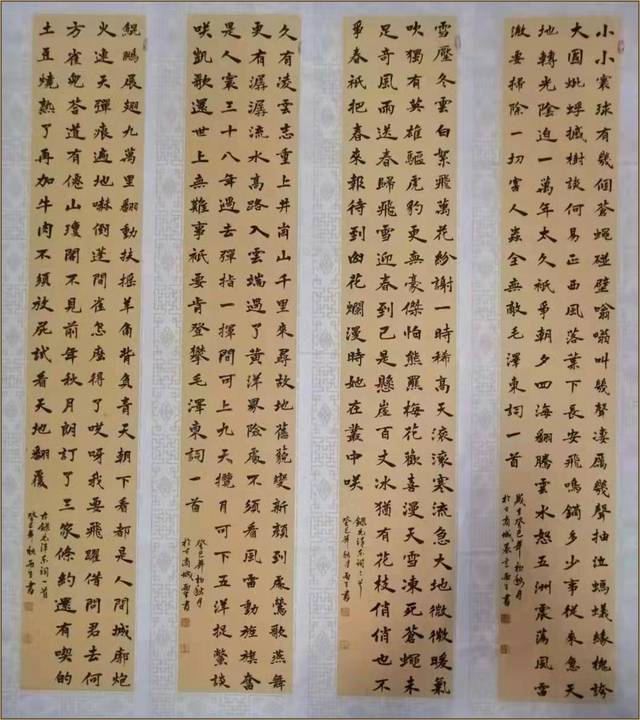 小小寰球有幾個蒼蠅碰壁嗡嗡叫幾聲凄厲幾聲抽泣螞蟻緣槐誇
大國蚍蜉撼樹談何易正西風落葉下長安飛鳴鏑多少事從來急天
地轉光陰迫一萬年太久祇爭朝夕四海翻騰雲水怒五洲震蕩風雷
激要掃除一切害人蟲全無敵毛澤東詞一首
雪壓冬雲白絮飛萬花紛謝一時稀高天滾滾寒流急大地微微暖氣
吹獨有英雄驅虎豹更無豪傑怕熊羆梅花歡喜漫天雪凍死蒼蠅未
足奇風雨送春歸飛雪迎春到已是懸崖百丈冰猶有花枝俏俏也不
爭春祇把春來報待到山花爛漫時她在叢中咲
錄毛澤東詞二首
久有凌雲志重上井岡山千里來尋故地舊貌變新顏到處鶯歌燕舞
更有潺潺流水高路入雲端過了黃洋界險處不須看風雷動旌旗奮
是人寰三十八年過去彈指一揮間可上九天攬月可下五洋捉鱉談
咲凱歌還世上無難事祇要肯登攀毛澤東詞一首
癸巳年初秋月
於古商城雨生書
鯤鵬展翅九萬里翻動扶搖羊角背負青天朝下看都是人間城廓炮
火連天彈痕遍地嚇倒蓬間雀怎麼得了哎呀我要飛躍借問君去何
方雀兒答道有僊山瓊閣不見前年秋月朗訂了三家條約還有喫的
土豆燒熟了再加牛肉不須放屁試看天地翻覆
右錄毛澤東詞一首
癸巳年秋雨生書